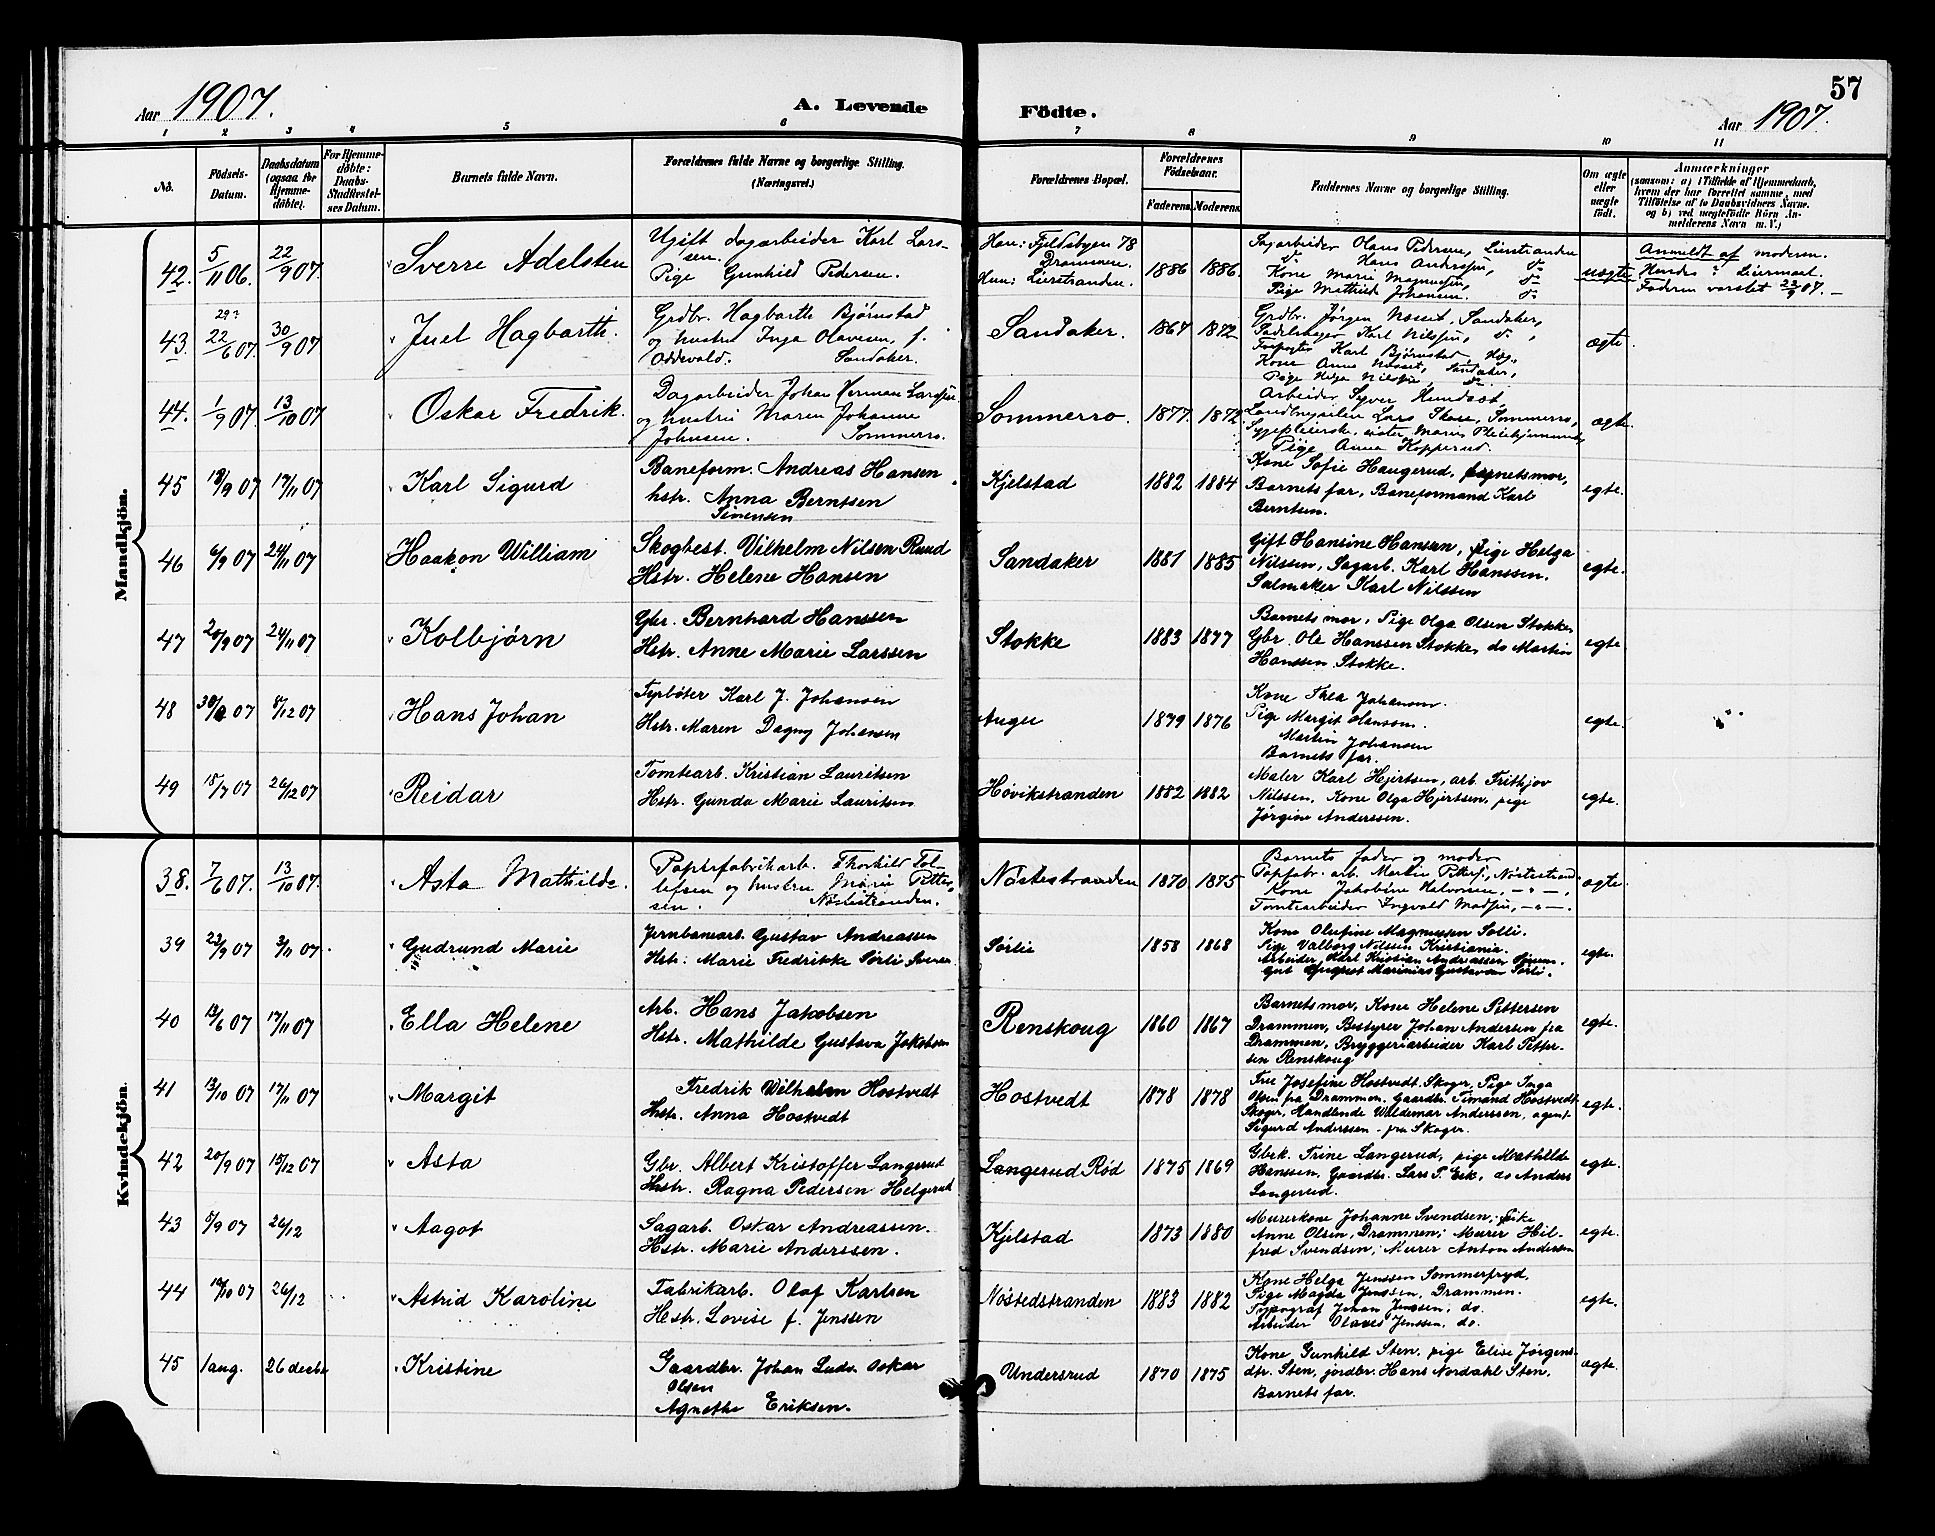 57
Aar 1907.
A. Levende
Födte.
Aar 1907.
1 2 3 4 5 6 7 8 9 10 11
No.
Födsels-
Datum.
Daabsdatum
(ogsaa for
Hjemme-
döbte).
For Hjemme-
döbte:
Daabs-
Stadfæstel-
ses Datum.
Barnets fulde Navn.
Forældrenes fulde Navne og borgerlige Stilling.
(Næringsvei.)
Forældrenes Bopæl.
Forældrenes
Födselsaar.
Faderens. Moderens.
Faddernes Navne og borgerlige Stilling.
Om ægte
eller
uægte
födt.
Anmærkninger
(saasom: a) i Tilfælde af Hjemmedaab,
hvem der har forrettet samme, med
Tilföielse af to Daabsvidners Navne.
og b) ved uægtefödte Börn An-
melderens Navn m. V.)
Mandkjön.
42. 5/11 06. 22/9 07. Sverre Adelsten
Ugift dagarbeider Karl Lars-
sen.
Pige Gunhild Pedersen.
Han: Fjeldsbyen 78
Drammen.
Hun: Lierstranden.
1886 1886.
Sagarbeider Olaus Pedersen, Lierstranden
do Hans Anderssen, do
Kone Marie Magnussen, do
Pige Mathilde Johansen. do
uægte
Anmeldt af moderen.
Hendes : Liermoet.
Faderen varslet 22/9 07. —
43. 29? 22/6 07. 30/9 07 Juel Hagbarth.
Grdbr. Hagbarth Bjørnstad
og hustru Inga Olavesen, f.
Oddevald. Sandaker.
Sandaker. 1867 1872
Grdbr. Jörgen Næsset, Sandaker,
Sadelmager Karl Nilssen, do,
Karl Bjørnstad
Kone Anna Næsset, Sandaker,
Pige Helga Nilssen, do
ægte.
44. 1/9 07. 13/10 07 Oskar Fredrik.
Dagarbeider Johan Herman Larssen
og hustru Maren Johanne
Johnsen. Sommerro.
Sommerro. 1877. 1872.
Arbeider Syver Hundsöt,
Lars Skare, Sommerro,
Sygepleierske, søster Marie
Pige Anna Kopperud.
ægte.
45 18/9 07 17/11 07 Karl Sigurd
Baneform. Andreas Hansen
hstr. Anna Berntsen
Simensen
Kjelstad 1882 1884
Kone Sofie Haugerud, barnets mor,
Barnets far, Baneformand Karl
Berntsen.
egte.
46 6/9 07 24/11 07 Haakon William
Skogbest. Vilhelm Nilsen Ruud
Hstr. Helene Hansen
Sandaker 1881 1885
Gift Hansine Hansen, pige Helga
Nilssen, Sagarb. Karl Hanssen.
Salmaker Karl Nilssen
egte.
47 20/9 07 24/11 07 Kolbjörn
Gbr. Bernhard Hanssen
Hstr. Anne Marie Larssen
Stokke 1883 1877
Barnets mor, Pige Olga Olsen Stokke,
Gbr. Ole Hanssen Stokke, do Martin
Hanssen Stokke.
egte.
48 30/8 07 8/12 07 Hans Johan
Fyrbøter Karl J. Johansen
Hstr. Maren Dagny Johansen
Auger 1879 1876
Kone Thea Johansen.
Pige Margit Hansson.
Martin Johansen
Barnets far.
egte.
49 18/7 07 26/12 07 Reidar
Tomtearb. Kristian Lauritsen
Hstr. Gunda Marie Lauritsen
Høvikstranden 1882 1882
Maler Karl Hjertsen, arb. Frithjov
Nilssen, Kone Olga Hjertsen, pige
Jörgine Anderssen.
egte.
Kvindekjön.
38. 7/6 07. 13/10 07. Asta Mathilde.
Papirfabrikarb. Thorkild Tol-
lefsen og hustru Marie Petter-
sen. Nöstestranden.
Nöstestranden 1870 1875
Barnets fader og moder
Papfabr. arb. Martin Peters., Nöstestrand.
Kone Jakobine Halvorsen, — " —,
Tomtearbeider Ingvald Madsen, — " —.
ægte.
39 23/9 07 3/11 07. Gudrund Marie
Jernbanearb. Gustav Andreassen
Hstr. Marie Fredrikke Sørli Svensen.
Sørlie 1858 1868
Kone Olufine Magnussen Solli.
Pige Valborg Nilssen Kristiania.
Arbeider, Karl Kristian Andreassen
Gut August Marinius Gustavsen Sørli.
egte.
40 13/6 07 17/11 07 Ella Helene
Arb. Hans Jakobsen
Hstr. Mathilde Gustava Jakobsen
Renskoug 1860 1867
Barnets mor, Kone Helene Pettersen
Drammen, Bestyrer Johan Andersen fra
Drammen, Bryggeriarbeider Karl Petter-
sen Renskoug
egte.
41 13/10 07 17/11 07 Margit
Fredrik Wilhelm Hostvedt
Hstr. Anna Hostvedt
Hostvedt 1878 1878
Frue Josefine Hostvedt Skoger, Pige Inga
Olsen fra Drammen. Gaardbr. Timand Hostvedt
Skoger, Handlende Waldemar Anderssen, agent
Sigurd Anderssen - fra Skoger.
egte.
42 20/9 07 15/12 07 Asta
Gbr. Albert Kristoffer Langerud
Hstr. Ragna Pedersen Helgerud
Langerud Rød 1875 1869
Gbrk. Trine Langerud, pige Mathilde
Hanssen, Gaardbr. Lars P. Eek, do Anders
Langerud.
egte.
43 8/9 07 26/12 Aagot
Sagarb. Oskar Andreassen.
Hstr. Marie Anderssen.
Kjelstad 1873 1880
Murerkone Johanne Svendsen; Pike
Anne Olsen, Drammen; Murer Hil-
fred Svendsen; Murer Anton Andersen
egte.
44 19/10 07 26/12 Astrid Karoline
Fabrikarb. Olaf Karlsen
Hstr. Lovise f. Jenssen
Nöstedstranden 1883 1882
Kone Helga Jenssen Sommerfryd.
Pige Magda Jenssen, Drammen.
Typograf Johan Jenssen, do.
Arbeider Olaves Jenssen, do.
egte.
45 1 aug. 26 decbr Kristine
Gaardbr. Johan Ludv. Oskar
Olsen
Agnethe Eriksen.
Undersrud 1870 1875
Kone Gunhild Sten, pige Elise Jörgens-
dtr. Sten, jordbr. Hans Nordahl Sten,
Barnets far.
ægte.